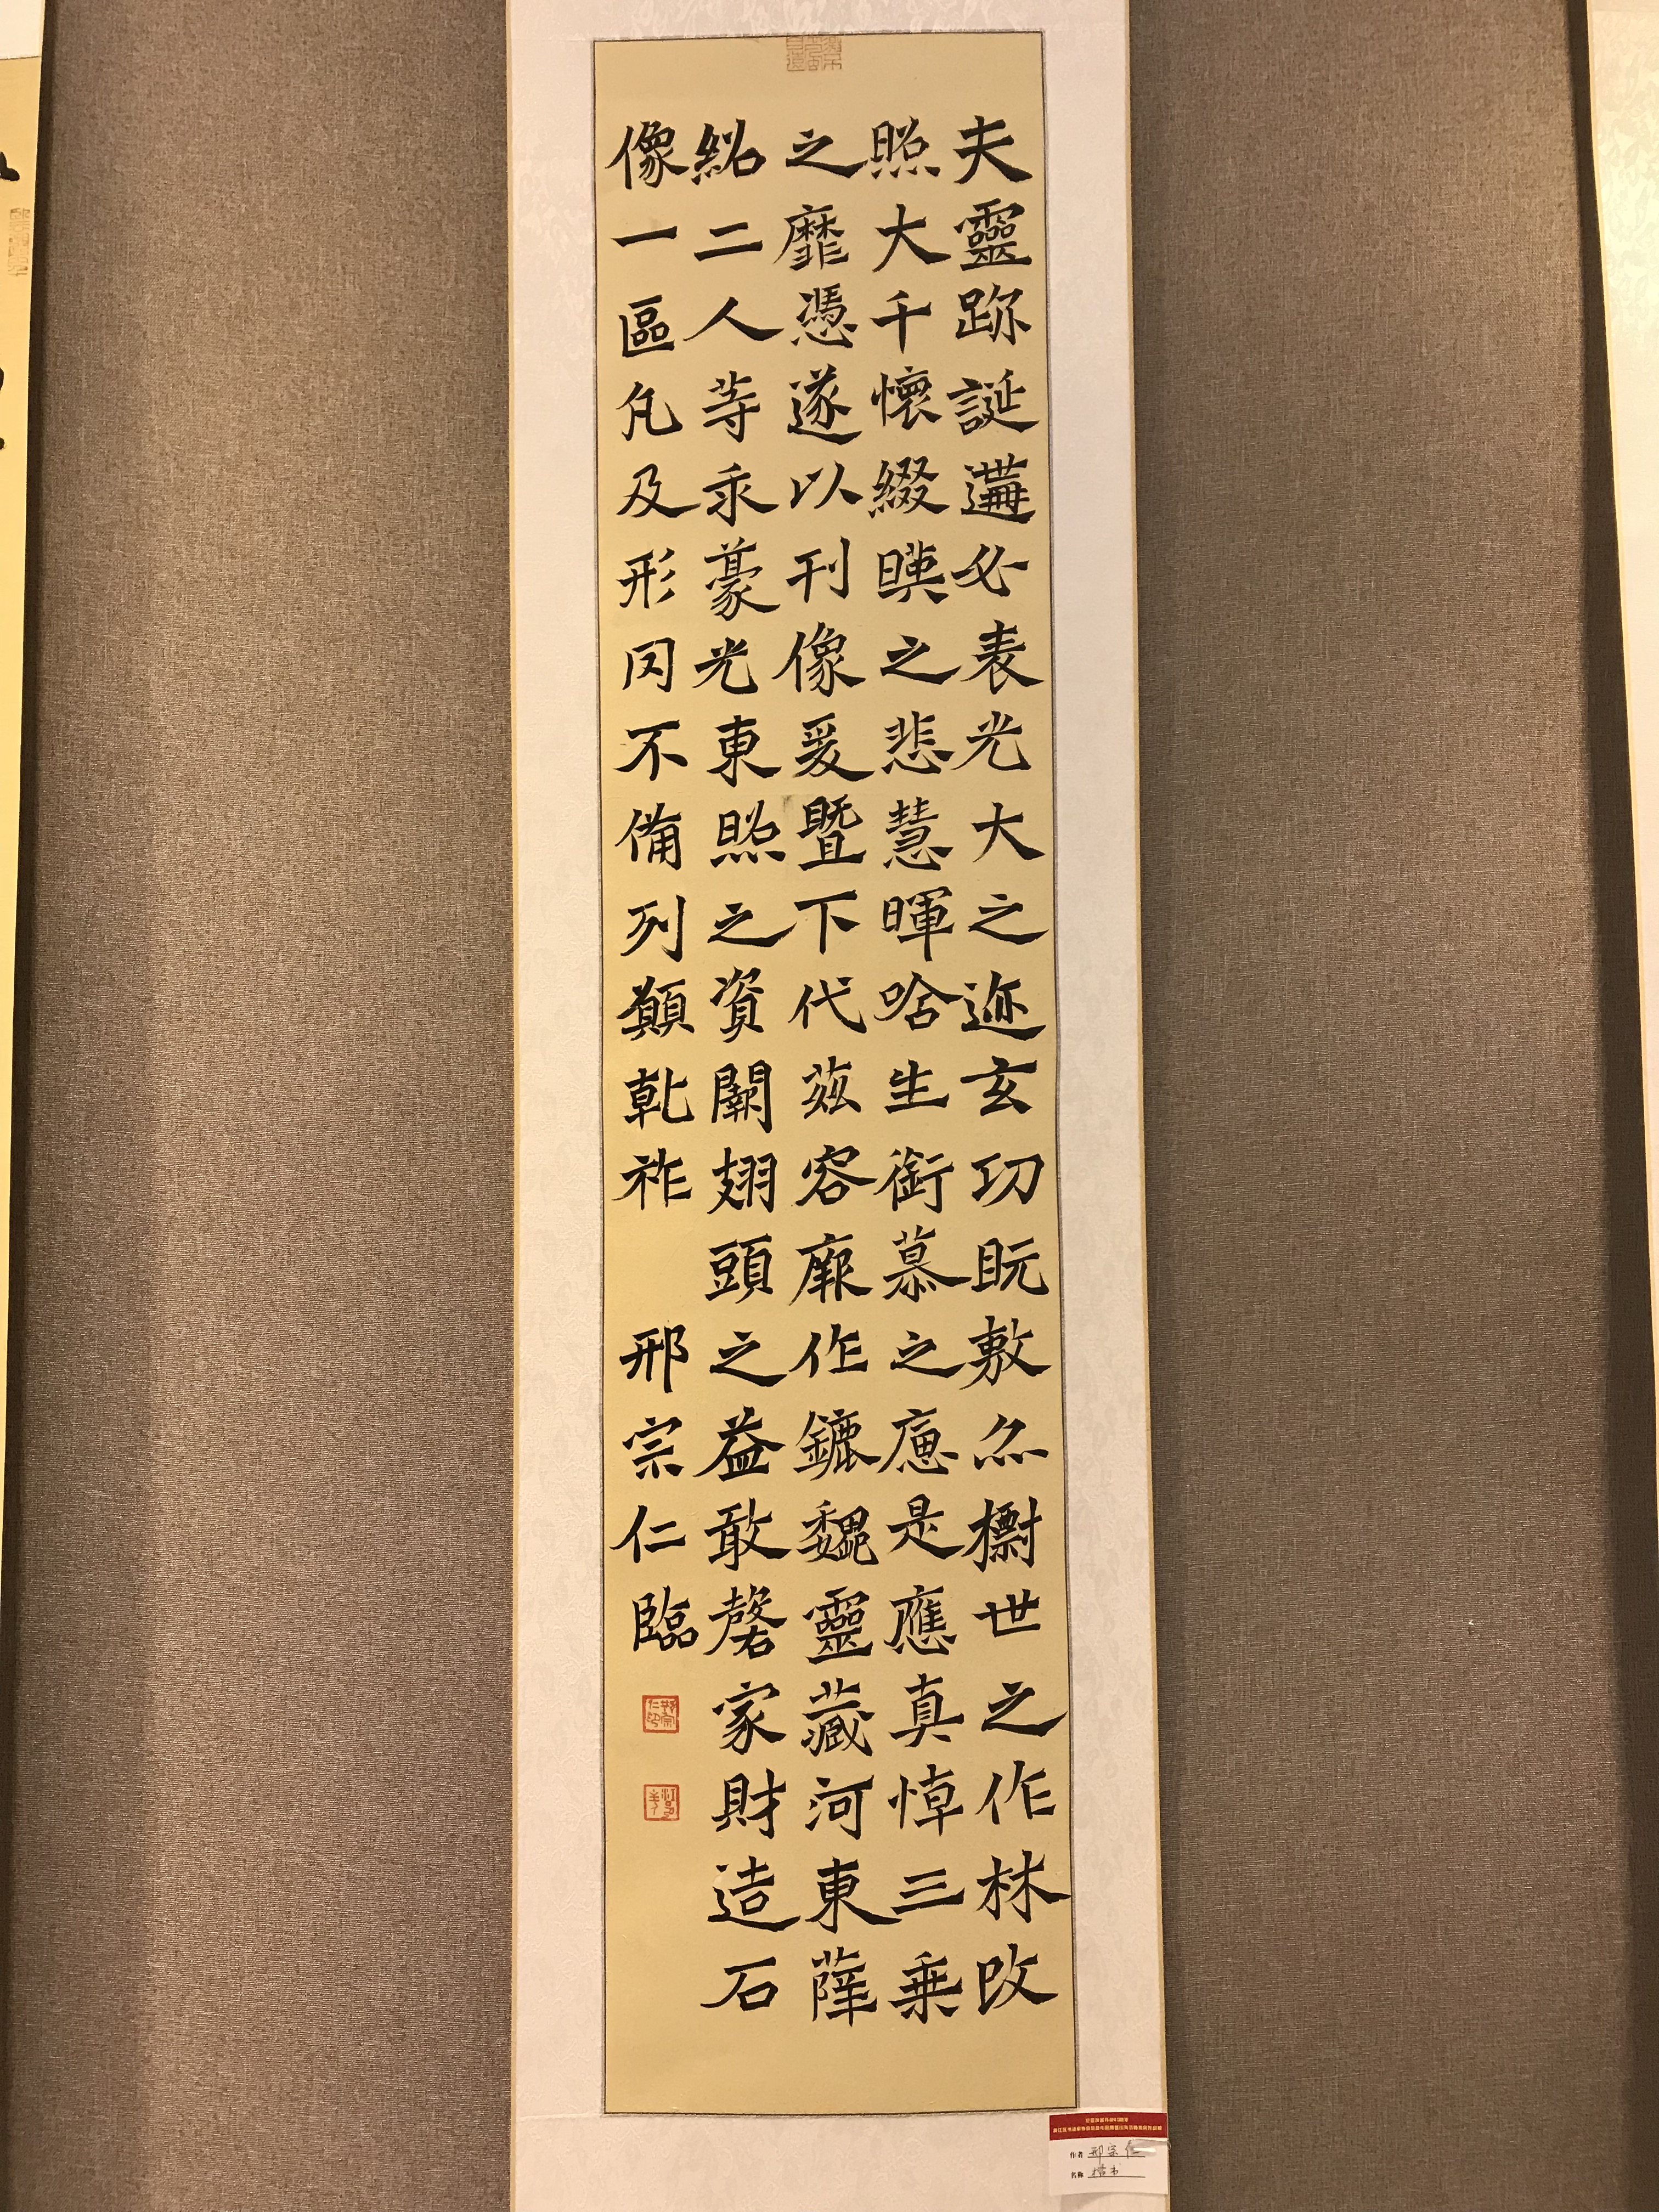 夫靈跡誕遘必表光大之迹玄功既敷亦摽世之作林改
照大千懷綴暎之悲慧暉唅生銜慕之應是應真悼三乗
之靡憑遂以刊像爰暨下代茲容厥作鑣魏靈藏河東薛
紹二人等求豪光東照之資闕翅頭之益敢磬家財造石
像一區凡及形同不備列願乹祚
邢宗仁臨
作者 邢宗仁
名称 楷书